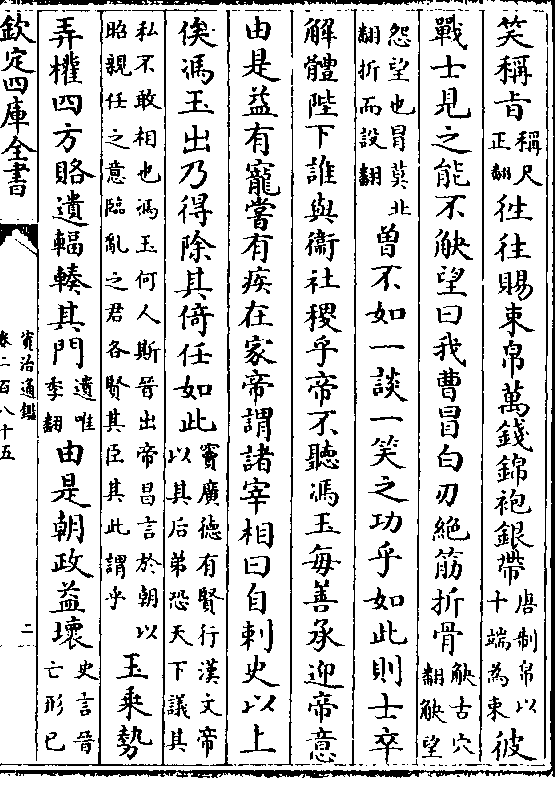 笑稱㫖稱尺正翻徃徃賜束帛萬錢錦袍銀帶唐制帛以十端為束彼
戰士見之能不觖望曰我曹冒白刃絶筋折骨觖古穴翻觖望
怨望也冒莫北翻折而設翻曽不如一談一笑之功乎如此則士卒
解體陛下誰與衞社稷乎帝不聽馮玉每善承迎帝意
由是益有寵嘗有疾在家帝謂諸宰相曰自刺史以上
俟馮玉出乃得除其倚任如此竇廣德有賢行漢文帝以其后弟恐天下議其
私不敢相也馮玉何人斯晉出帝昌言於朝以昭親任之意臨亂之君各賢其臣其此謂乎玉乘勢
弄權四方賂遺輻輳其門遺唯季翻由是朝政益壊史言晉亡形已
欽定四庫全書
資治通鑑
卷二百八十五
二